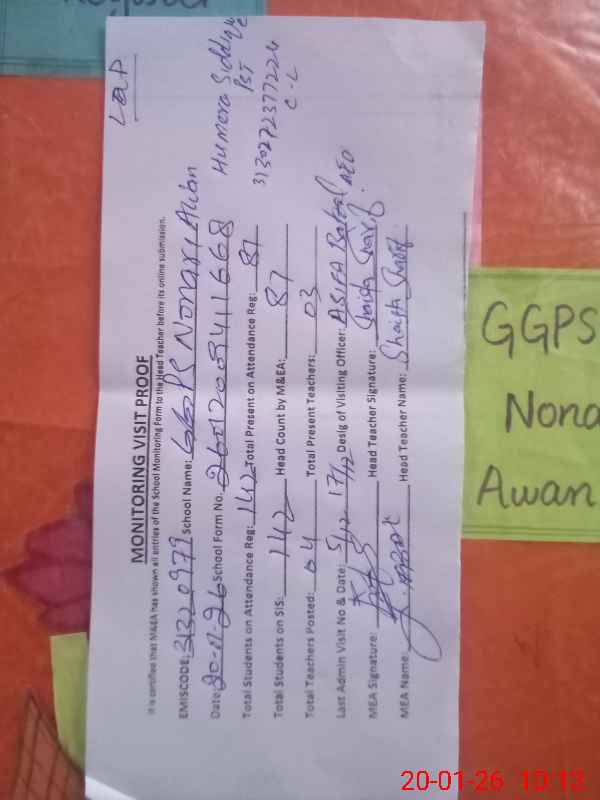 LAP
MONITORING VISIT PROOF
It is certified that M&EA has shown all entries of the School Monitoring Form to the Head Teacher before its online submission.
EMISCODE: 31320979 School Name: GGPS Nonari Awan
Date: 20-01-26 School Form No. 26012009411668
Humera
PST
3130272377224
C-L
Total Students on Attendance Reg: 142 Total Present on Attendance Reg: 87
Total Students on SIS: 142 Head Count by M&EA: 87
Total Teachers Posted: 04 Total Present Teachers: 03
Last Admin Visit No & Date: 5/12 17/12 Desig of Visiting Officer: ASIFA Batool AEO
MEA Signature: Head Teacher Signature: Shaista Sharif
MEA Name: Head Teacher Name: Shaista Sharif
GGPS
Nona
Awan
20-01-26 10:13